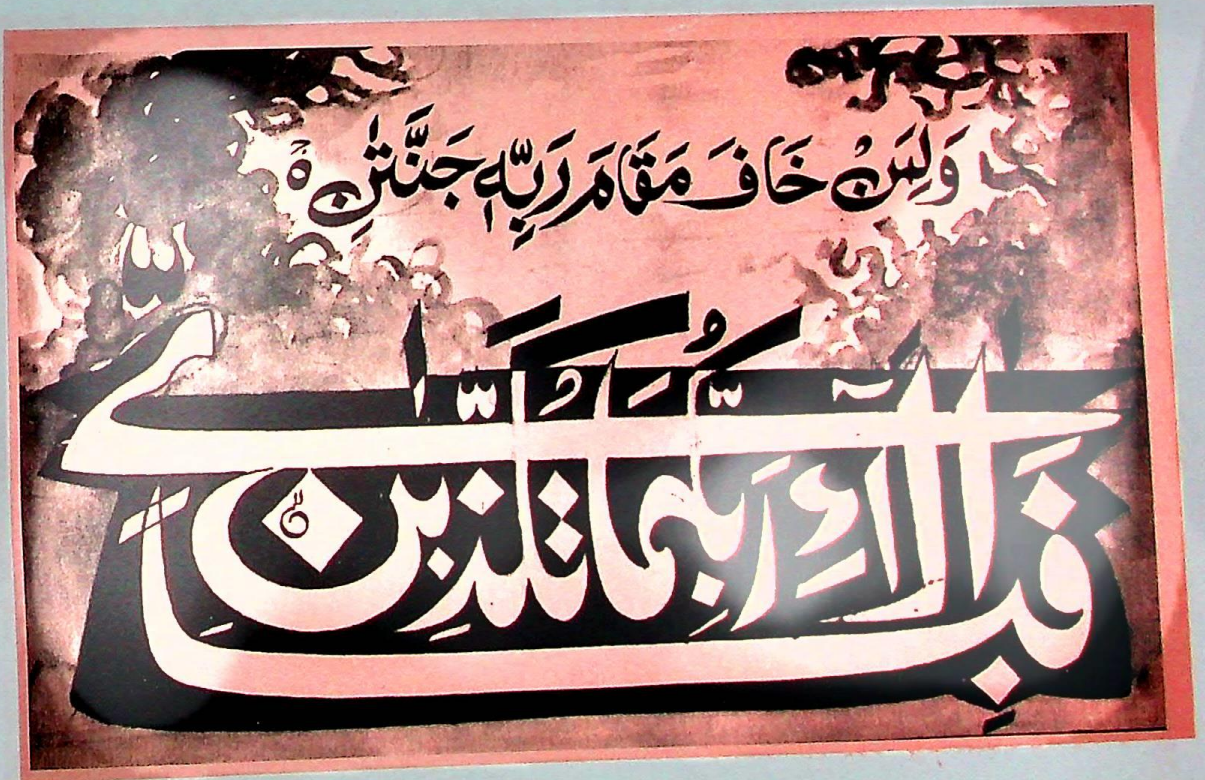 وَلِمَنْ خَافَ مَقَامَ رَبِّهٖ جَنَّتٰنِ ۚ
فَبِاَيِّ اٰلَآءِ رَبِّكُمَا تُكَذِّبٰنِ